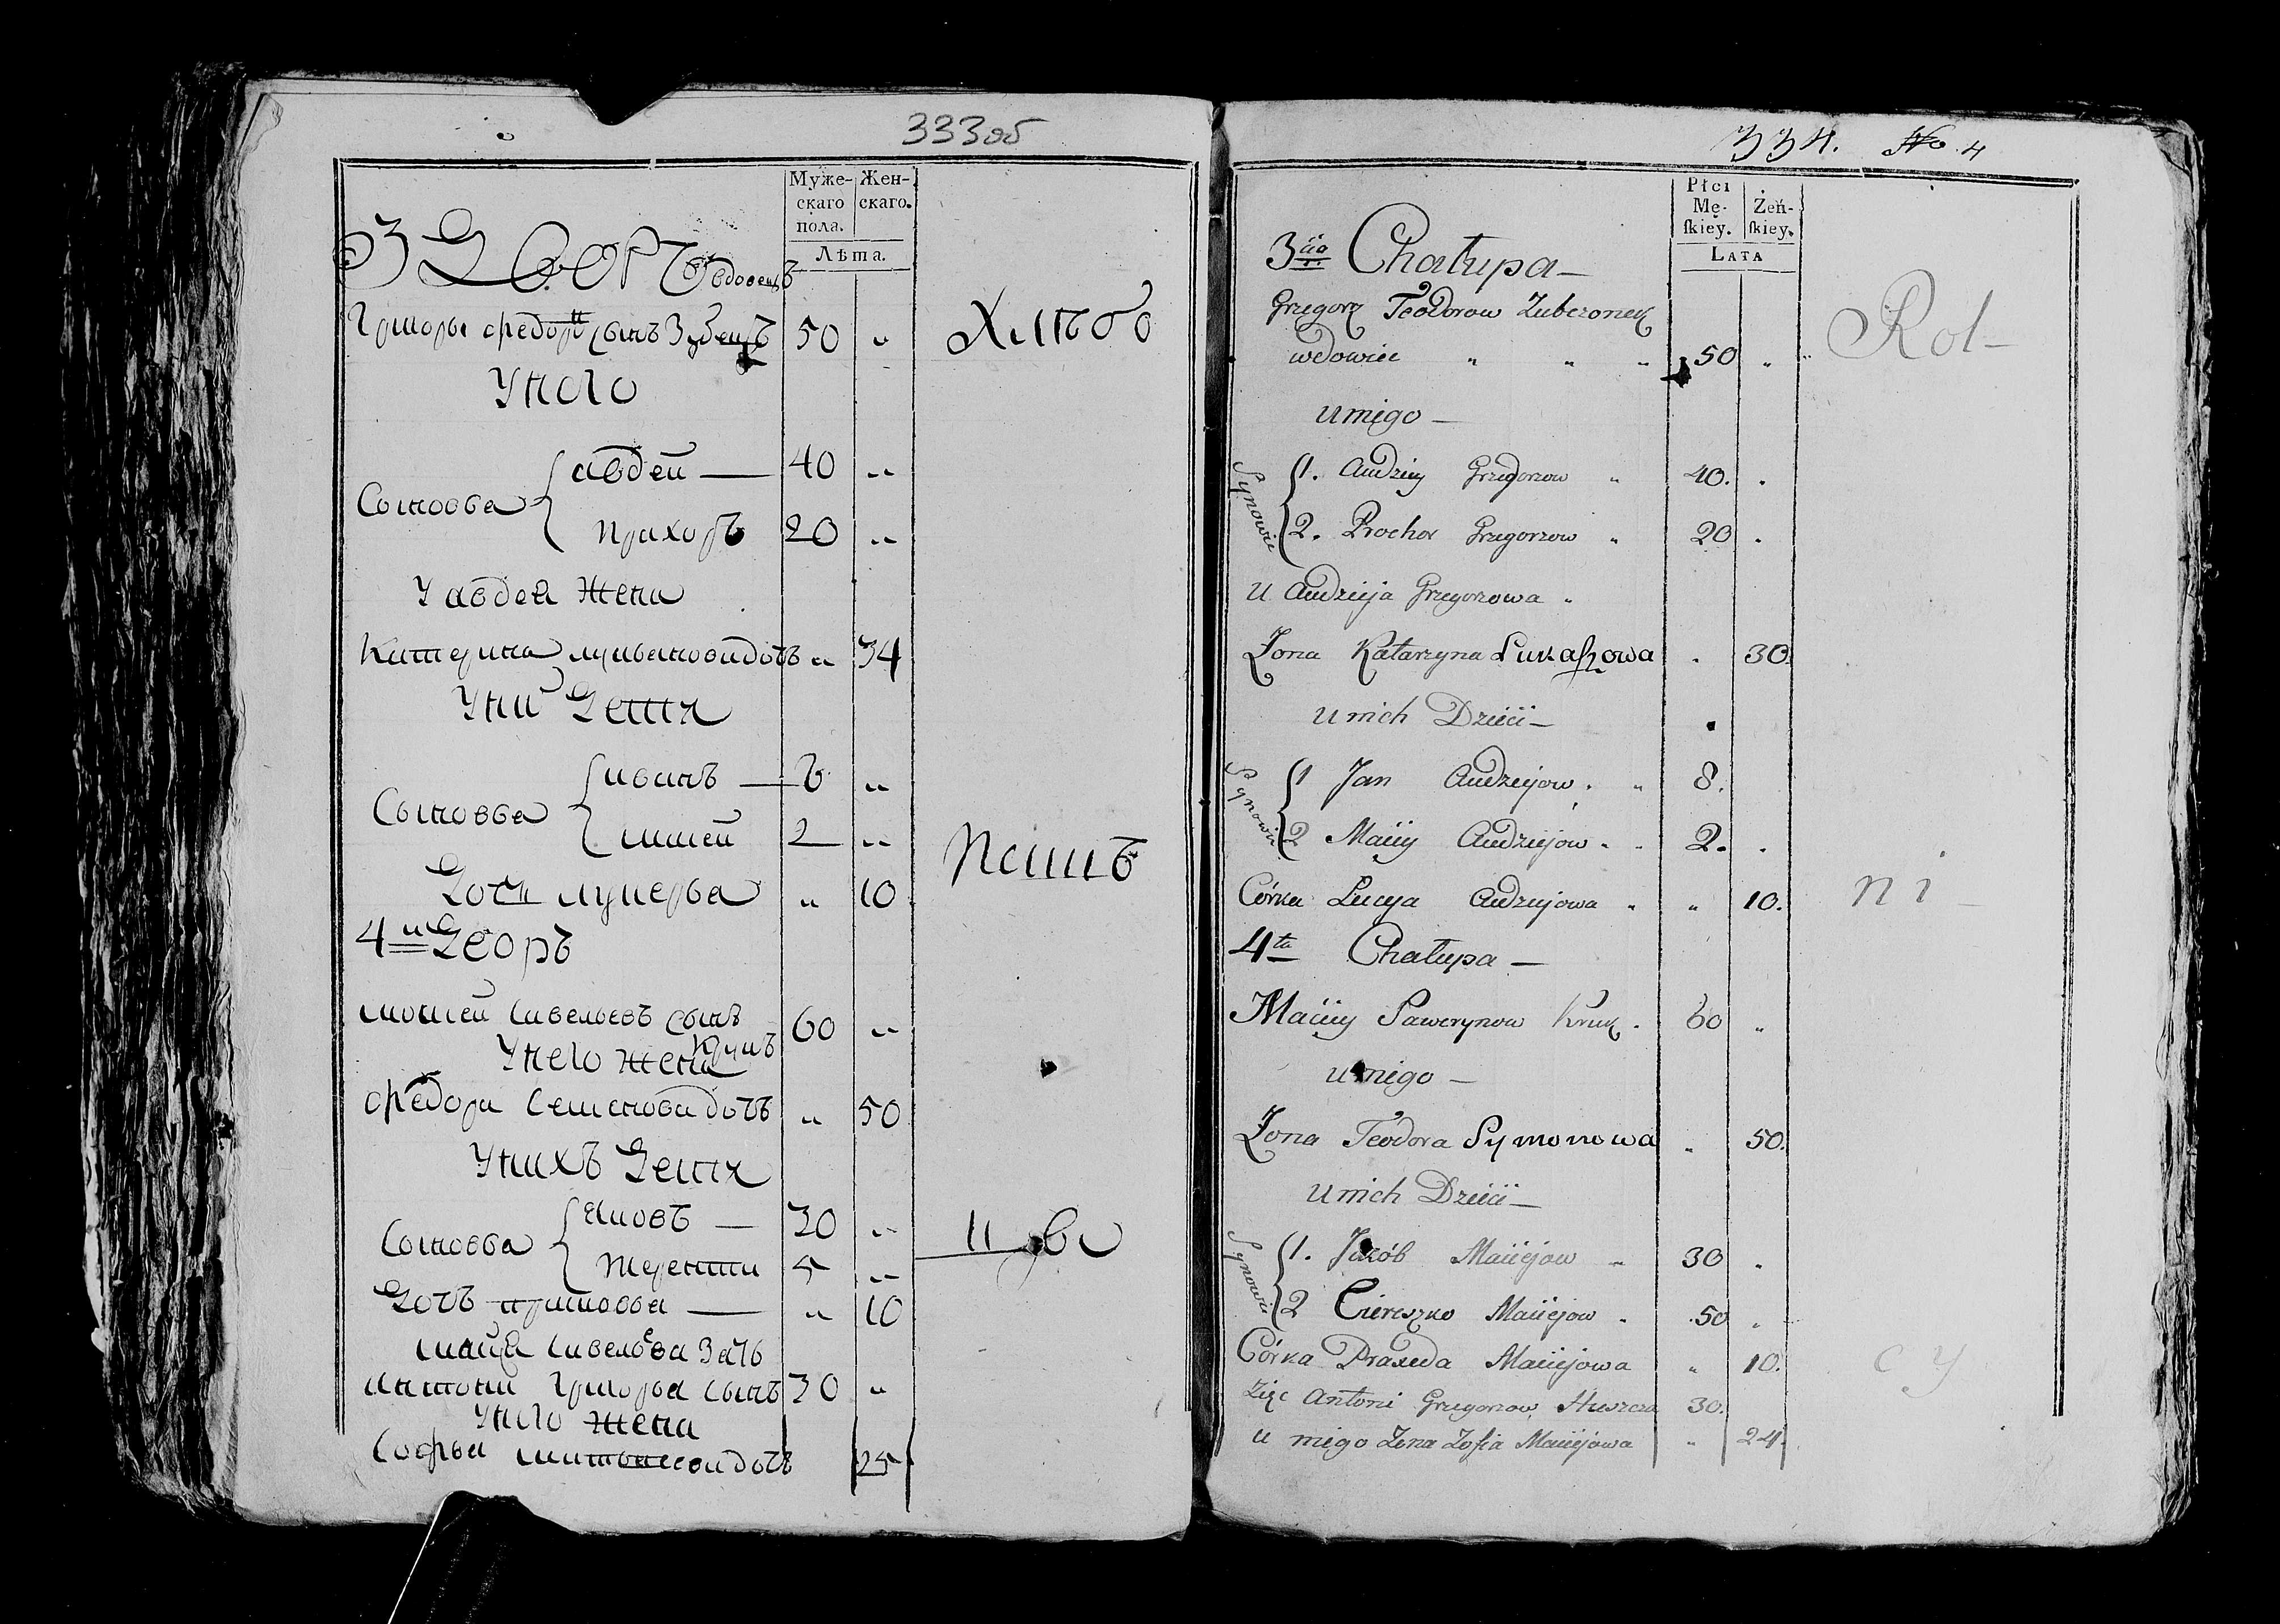 333об
Муже-
скаго
пола.
Жен-
скаго.
Лѣта.
3 Дворъ вдовецъ
Григори Федоровъ сынъ Зубецъ 50 "
Хлѣбо
У него
Сыновья
Авдей — 40 "
Прахоръ 20 "
У Авдея жена
Катерина лукьянова дочь " 34
У них Дети
Сыновья
Иванъ — 8 "
Матей 2 "
Пашъ
Дочь лукерья " 10
4й Дворъ
Матей савельевъ сынъ
Крукъ 60 "
У него жена
Федора Семенова дочь " 50
У нихъ Дети
Сыновья
Яковъ — 30 "
Терентии 5 "
цы
Дочь — " 10
Матея савельева зать
Антони Григорья сынъ 30 "
У него жена
Софья матвеева дочь 25
334. No. 4
Płci
Mę-
skiey.
Żeń-
skiey.
LATA
3cia Chałupa —
Grzegorz Teodorow Zuberonek
wdowiec " " " 50 "
Rol-
u niego —
Synowie
1. Audziey Grzegorzow " 40. .
2. Prochor Grzegorzow " 20 .
u Audzieja Grzegorzowa "
Żona Katarzyna Łukaszowa . 30.
u nich Dzieci —
Synowie
1 Jan Audziejow . " 8.
2 Maciey Audziejow . " 2. .
Córka Łucya Audziejowa " " 10.
ni -
4ta Chałupa —
Maciey Sawerynow Kruk . 60 "
u niego —
Żona Teodora Symonowa " 50.
u nich Dzieci —
Synowie
1. Jakób Maciejow " 30 .
2 Ciereszko Maciejow . .50 "
Córka Praxeda Maciejowa " 10.
cy
Zięć Antoni Grzegorzow Huszcza 30.
u niego Żona Zofia Maciejowa " 24.